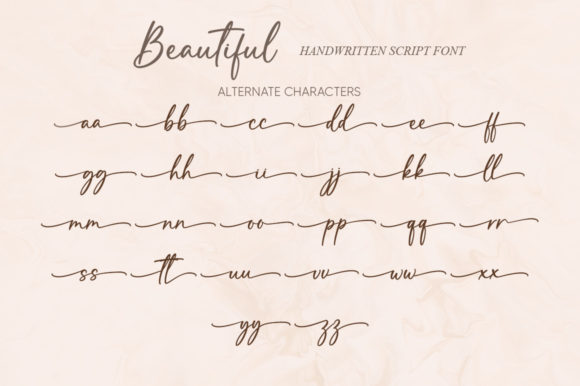 Beautiful HANDWRITTEN SCRIPT FONT
ALTERNATE CHARACTERS
aa bb cc dd ee ff
gg hh ii jj kk ll
mm nn oo pp qq rr
ss tt uu vv ww xx
yy zz